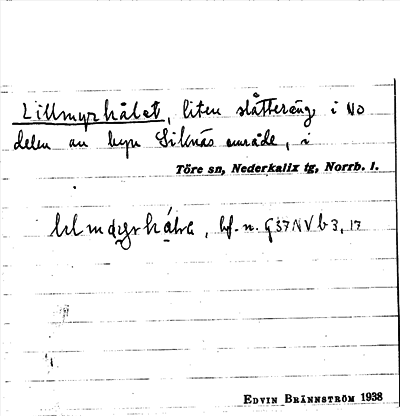 Lillmyrhålet, liten slåtteräng i NO
delen av byn Siknäs område, i
Töre sn, Nederkalix tg, Norrb. l.
bf. n. G 37 NV b 3, 17
EDVIN BRÄNNSTRÖM 1938